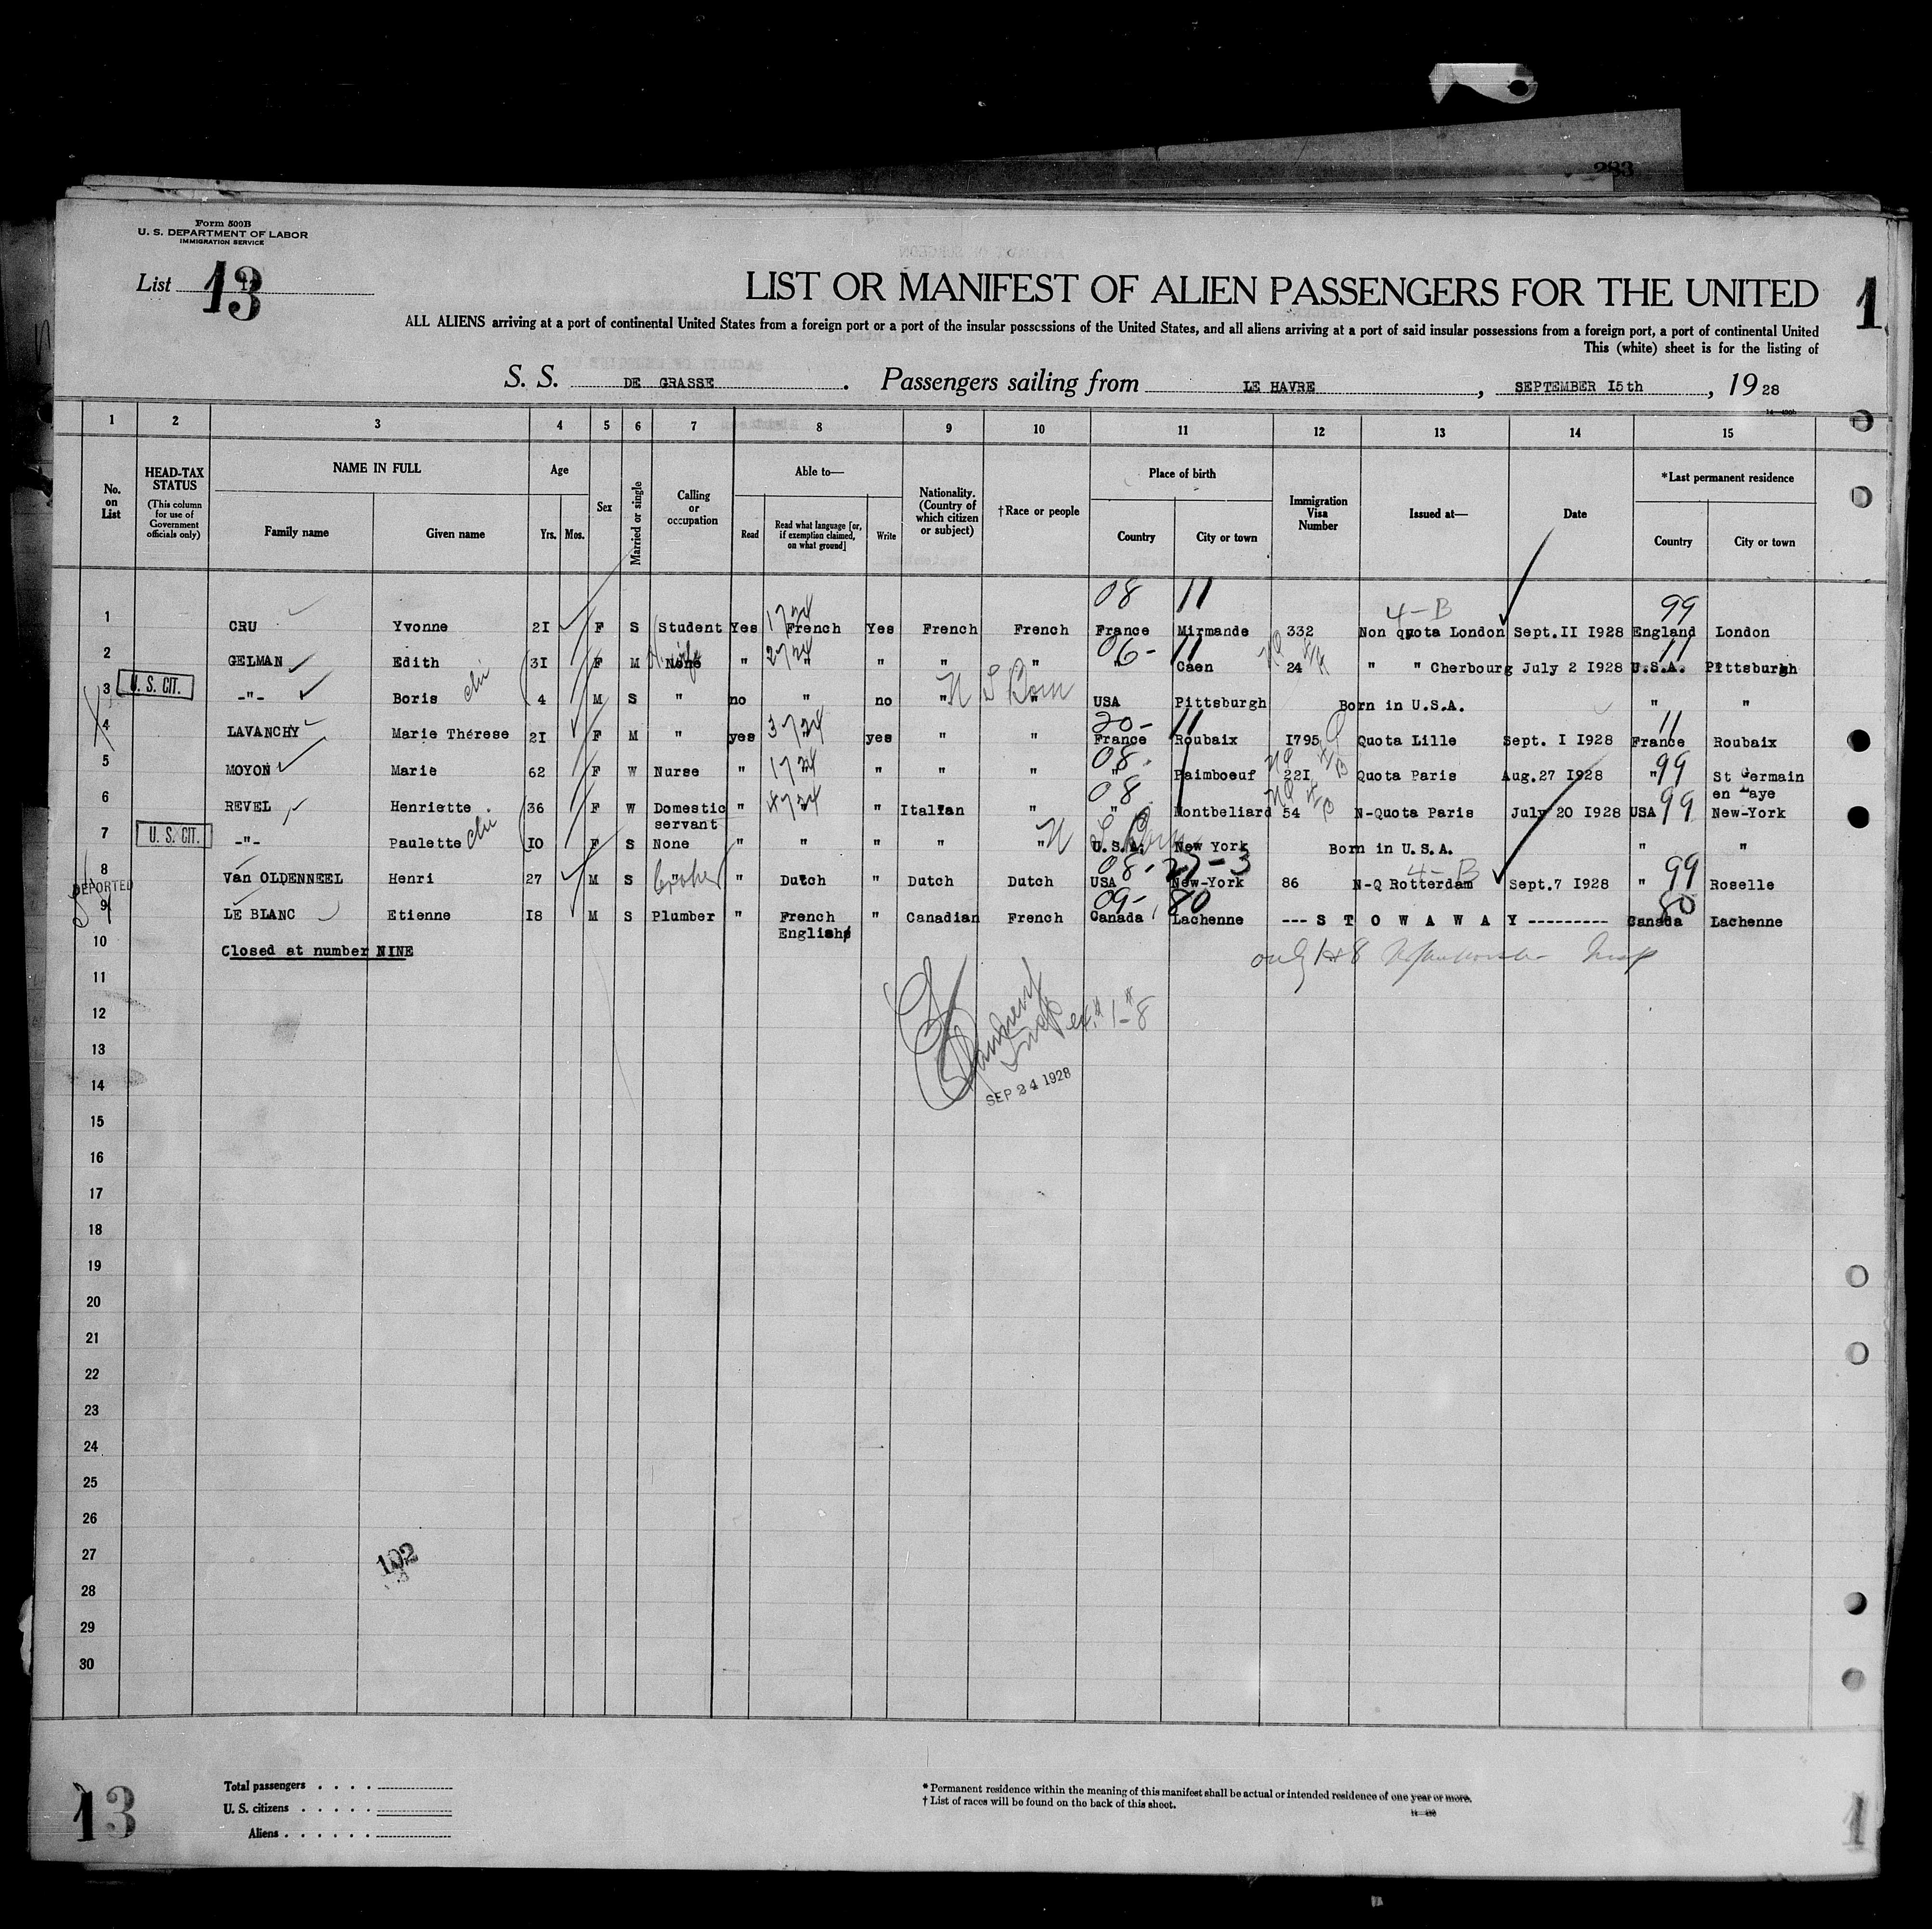 283
Form 500B
U. S. DEPARTMENT OF LABOR
IMMIGRATION SERVICE
List 13
LIST OR MANIFEST OF ALIEN PASSENGERS FOR THE UNITED 1
ALL ALIENS arriving at a port of continental United States from a foreign port or a port of the insular possessions of the United States, and all aliens arriving at a port of said insular possessions from a foreign port, a port of continental United
This (white) sheet is for the listing of
S. S. DE GRASSE. Passengers sailing from LE HAVRE, SEPTEMBER I5th, 1928
1 2 3 4 5 6 7 8 9 10 11 12 13 14 15
No. on List
HEAD-TAX STATUS
(This column for use of Government officials only)
NAME IN FULL
Family name Given name
Age
Yrs. Mos.
Sex
Married or single
Calling or occupation
Able to—
Read
Read what language [or, if exemption claimed, on what ground]
Write
Nationality. (Country of which citizen or subject)
†Race or people
Place of birth
Country City or town
Immigration Visa Number
Issued at—
Date
*Last permanent residence
Country City or town
08 11 4-B 99
1 CRU Yvonne 2I F S Student Yes French Yes French French France Mirmande 332 Non quota London Sept.II I928 England London
06- 11 11
2 GELMAN Edith 3I F M None " " " " " " Caen 24 " " Cherbourg July 2 I928 U.S.A. Pittsburgh
3 U. S. CIT. -"- Boris 4 M S " no no " " USA Pittsburgh Born in U.S.A. " "
20- 11 11
4 LAVANCHY Marie Thérese 2I F M " yes yes " " France Roubaix I795 Quota Lille Sept. I I928 France Roubaix
08. 99
5 MOYON Marie 62 F W Nurse " " " " " " Paimboeuf 22I Quota Paris Aug.27 I928 " St Germain en Laye
08 99
6 REVEL Henriette 36 F W Domestic servant " " " Italian " " Montbeliard 54 N-Quota Paris July 20 I928 USA New-York
7 U. S. CIT. -"- Paulette I0 F S None " " " " " U.S.A. New York Born in U.S.A. " "
08- 4-B 99
8 Van OLDENNEEL Henri 27 M S " " Dutch " Dutch Dutch USA New-York 86 N-Q Rotterdam Sept.7 I928 " Roselle
DEPORTED
09- 80 80
9 LE BLANC Etienne I8 M S Plumber " French English " Canadian French Canada Lachenne --- S T O W A W A Y --------- Canada Lachenne
10 Closed at number NINE
11
12
13
SEP 24 1928
14
15
16
17
18
19
20
21
22
23
24
25
26
27
102
28
29
30
13
Total passengers . . . .
U. S. citizens . . . . .
Aliens . . . . . .
* Permanent residence within the meaning of this manifest shall be actual or intended residence of one year or more.
† List of races will be found on the back of this sheet.
1